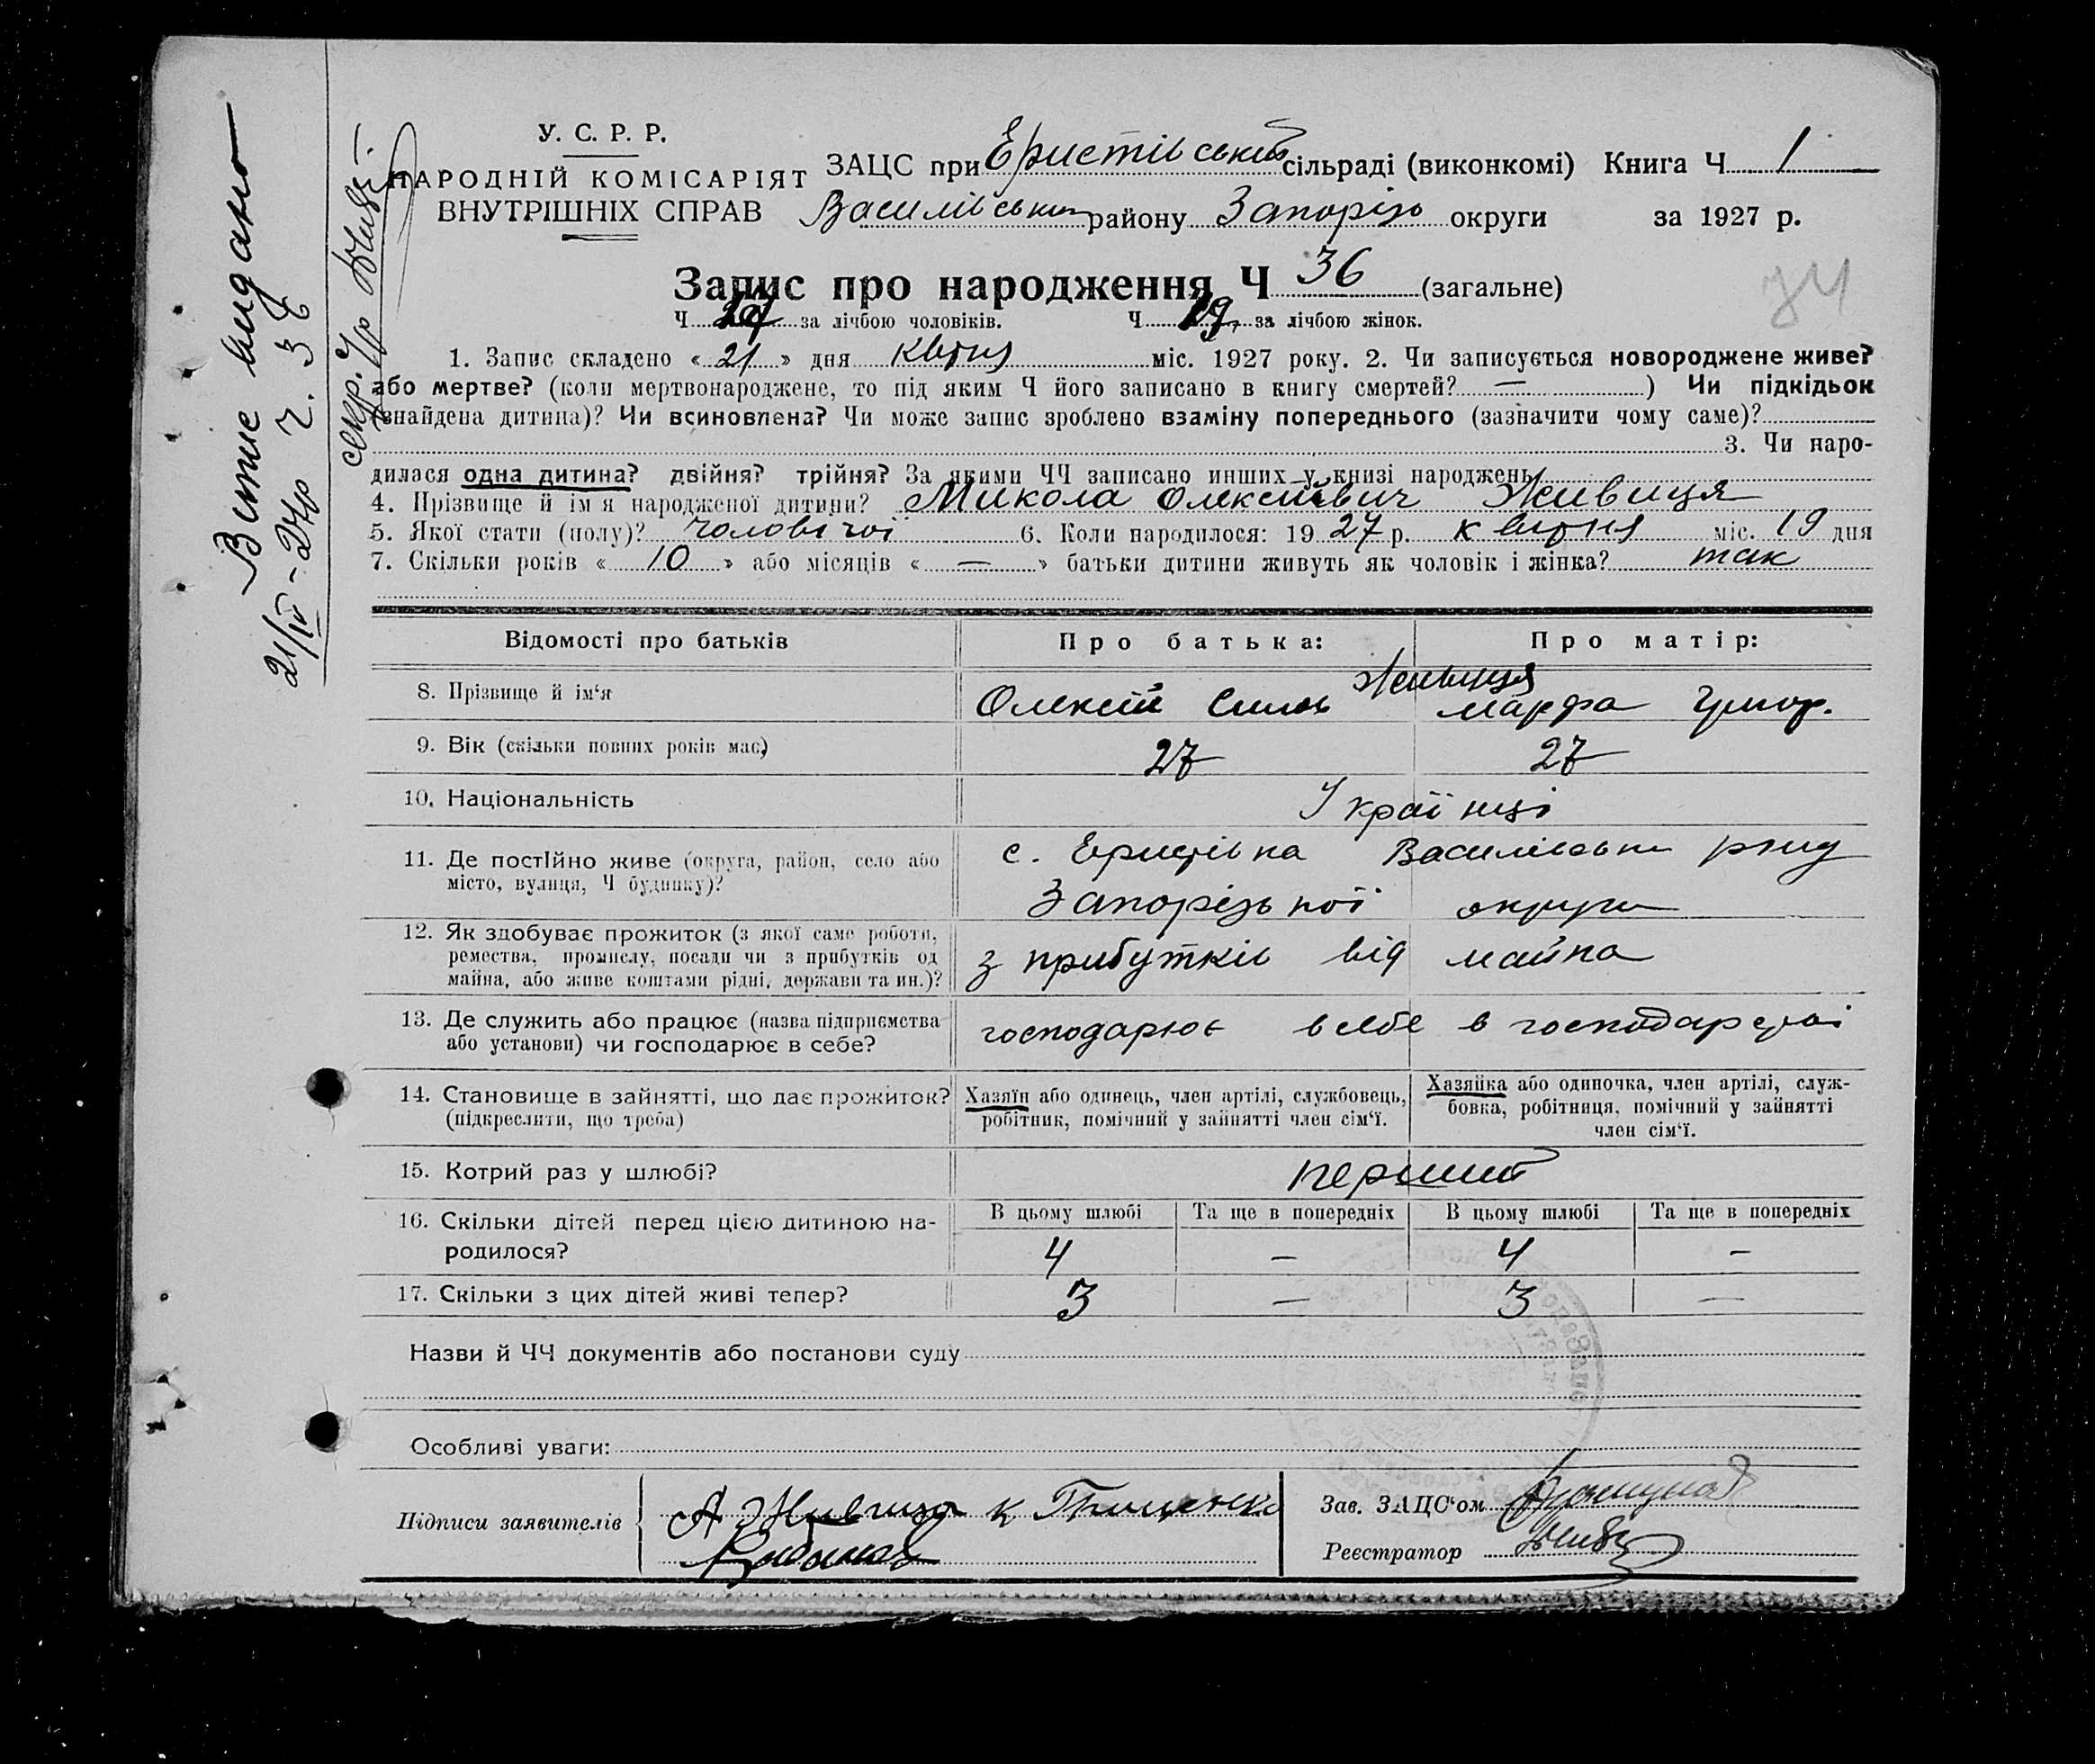 У. С. Р. Р.
НАРОДНІЙ КОМІСАРІЯТ
ВНУТРІШНІХ СПРАВ
ЗАЦС при Еристівській сільраді (виконкомі) Книга Ч 1
Василівськ району Запорізь округи за 1927 р.
Запис про народження Ч 36 (загальне)
34
Ч за лічбою чоловіків. Ч 19 за лічбою жінок.
1. Запис складено « 21 » дня квітня міс. 1927 року. 2. Чи записується новороджене живе?
або мертве? (коли мертвонароджене, то під яким Ч його записано в книгу смертей? — ) Чи підкідьок
(знайдена дитина)? Чи всиновлена? Чи може запис зроблено взаміну попереднього (зазначити чому саме)?
3. Чи наро-
дилася одна дитина? двійня? трійня? За якими ЧЧ записано инших у книзі народжень
4. Прізвище й ім'я народженої дитини? Микола Олексійович Живиця
5. Якої стати (полу)? чоловічої 6. Коли народилося: 19 27 р. квітня міс. 19 дня
7. Скільки років « 10 » або місяців « — » батьки дитини живуть як чоловік і жінка? так
Відомості про батьків Про батька: Про матір:
8. Прізвище й ім'я Живиця
Олексій Марфа Григор.
9. Вік (скільки повних років має) 27 27
10. Національність Українці
11. Де постійно живе (округа, район, село або
місто, вулиця, Ч будинку)?
с. Еристівка Василівськ району
Запорізької округи
12. Як здобуває прожиток (з якої саме роботи,
ремества, промислу, посади чи з прибутків од
майна, або живе коштами рідні, держави та ин.)?
з прибутків від майна
13. Де служить або працює (назва підприємства
або установи) чи господарює в себе?
господарює в себе в господарстві
14. Становище в зайнятті, що дає прожиток?
(підкреслити, що треба)
Хазяїн або одинець, член артілі, службовець,
робітник, помічний у зайнятті член сім'ї.
Хазяйка або одиночка, член артілі, служ-
бовка, робітниця, помічний у зайнятті
член сім'ї.
15. Котрий раз у шлюбі? перший
16. Скільки дітей перед цією дитиною на-
родилося?
В цьому шлюбі Та ще в попередніх В цьому шлюбі Та ще в попередніх
4 — 4 —
17. Скільки з цих дітей живі тепер? 3 — 3 —
Назви й ЧЧ документів або постанови суду
Особливі уваги:
Підписи заявителів А Живиця к Тищенко
Зав. ЗАЦС'ом
Реєстратор
Витис видано
21/IV-27р ч. 36
секр.